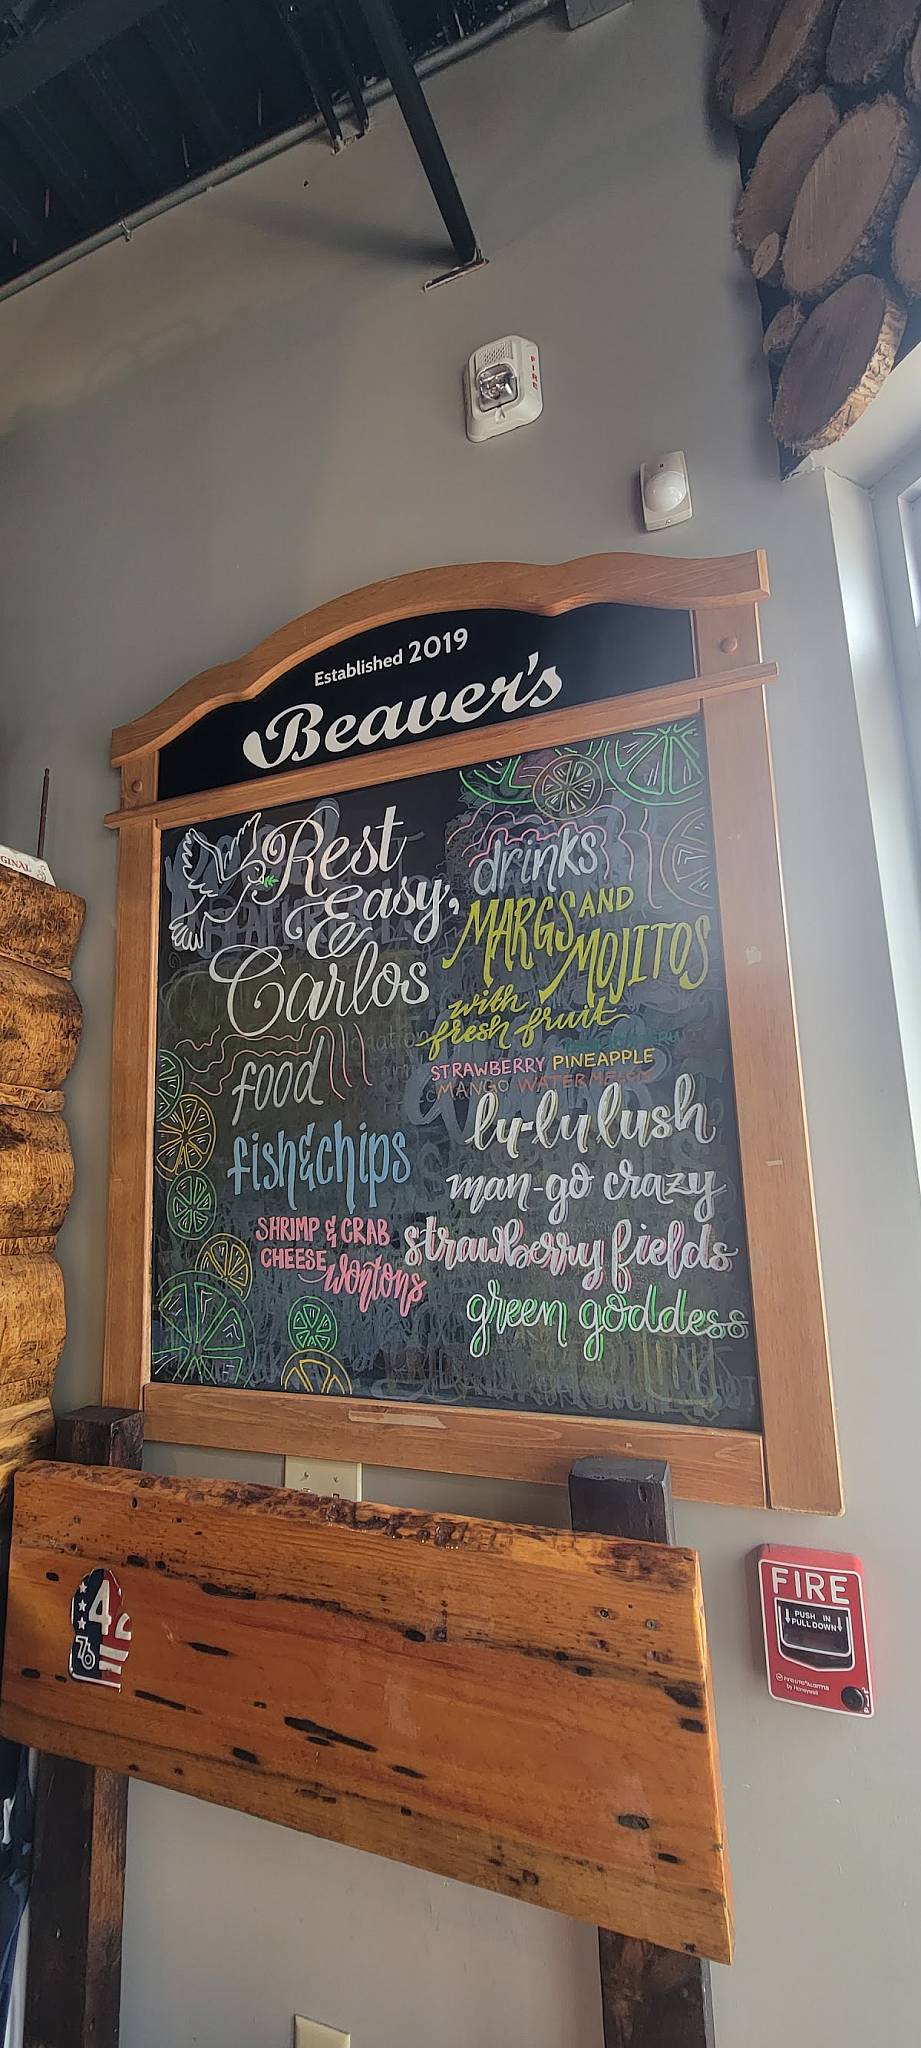 FIRE
Established 2019
Beaver's
Rest
Easy,
Carlos
food
fish&chips
SHRIMP & CRAB
CHEESE wontons
drinks
MARGS AND
MOJITOS
with
fresh fruit
STRAWBERRY PINEAPPLE
MANGO WATERMELON
ly-ly lush
man-go crazy
strawberry fields
green goddess
GINAL
4
76
FIRE
PUSH IN
PULL DOWN
by Honeywell